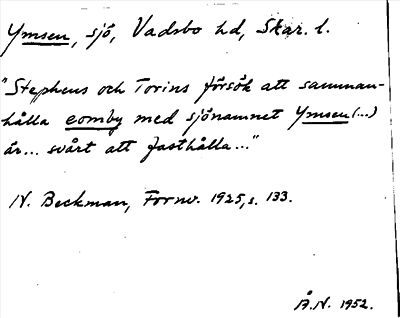 Ymsen, sjö, Vadsbo hd, Skar. l.
"Stephens och Torins försök att samman-
hålla eomby med sjönamnet Ymsen (...)
är... svårt att fasthålla..."
N. Beckman, Fornv. 1925, s. 133.
Å.N. 1952.